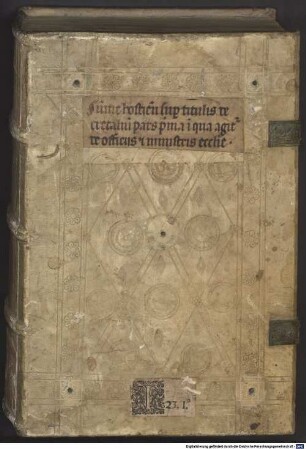 Sume hostien̄ sup titulis de
cretaliū pars pma ī qua agit
de officijs ⁊ ministris ecclie ·
I
23. I.
Digitalisierung gefördert durch die Deutsche Forschungsgemeinschaft
DFG